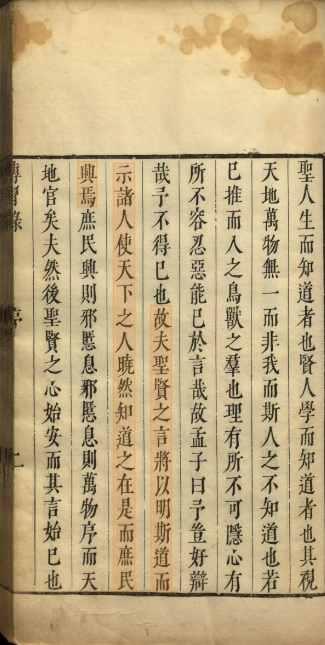 聖人生而知道者也賢人學而知道者也其視
天地萬物無一而非我而斯人之不知道也若
已推而入之鳥獸之羣也理有所不可隱心有
所不容忍惡能已於言哉故孟子曰予豈好辯
哉予不得已也故夫聖賢之言將以明斯道而
示諸人使天下之人曉然知道之在是而庶民
興焉庶民興則邪慝息邪慝息則萬物序而天
地官矣夫然後聖賢之心始安而其言始已也
傳習錄 序 二